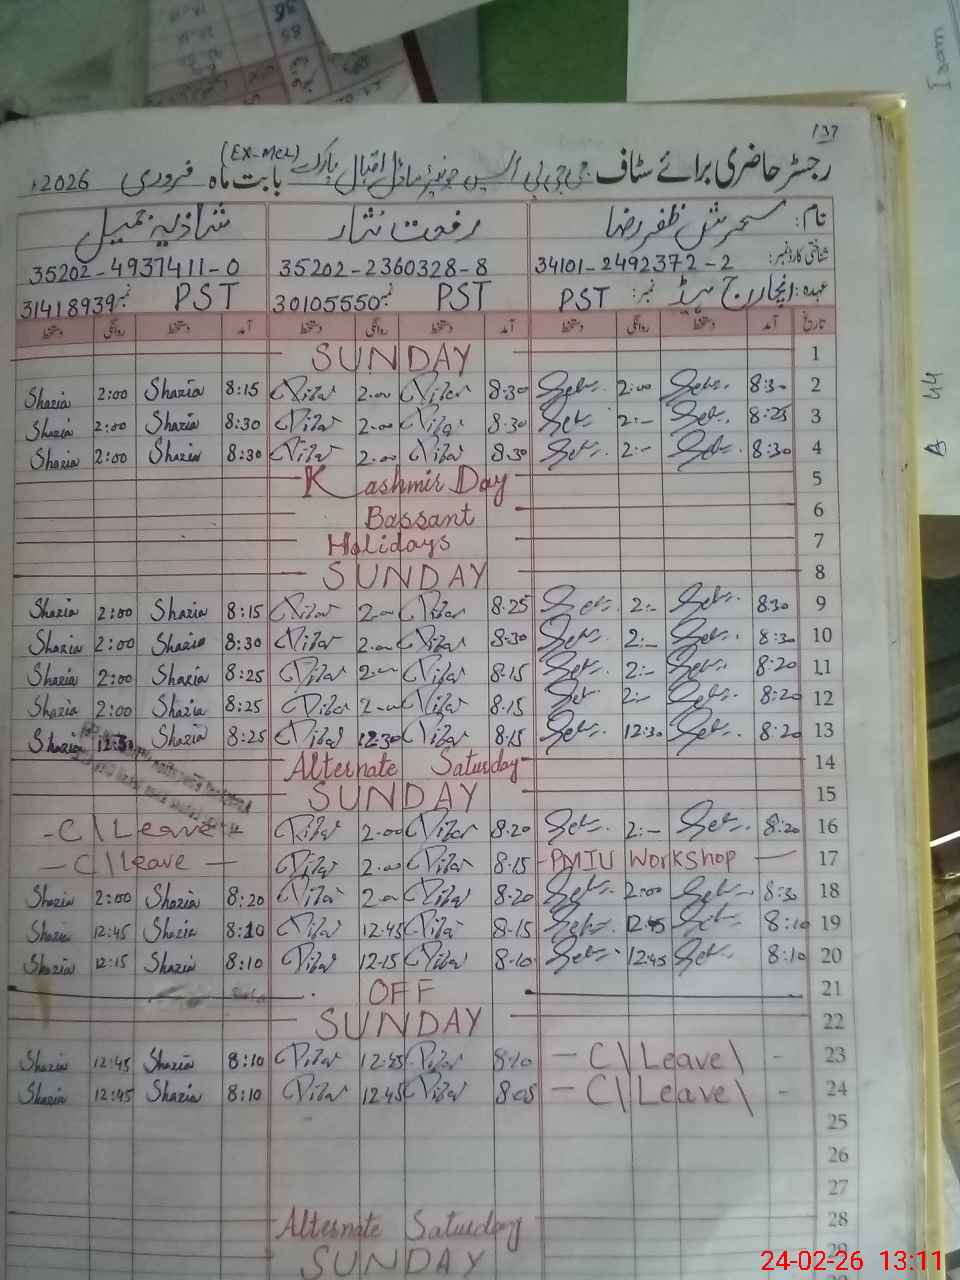 137
رجسٹر حاضری برائے سٹاف جی جی پی ایس جونیئر ماڈل اقبال پارک (EX-MCL) بابت ماہ فروری 2026ء
نام: سحرش ظفر رضا رفعت نثار شازیہ جمیل
شناختی کارڈ نمبر: 34101-2492372-2 35202-2360328-8 35202-4937411-0
عہدہ: انچارج ہیڈ نمبر: PST PST نمبر 30105550 PST نمبر 31418939
تاریخ آمد دستخط روانگی دستخط آمد دستخط روانگی دستخط آمد دستخط روانگی دستخط
SUNDAY 1
Shazia 2:00 Shazia 8:15 2.00 8:30 2:00 8:30 2
Shazia 2:00 Shazia 8:30 2.00 8.30 2:- 8:25 3
Shazia 2:00 Shazia 8:30 2.00 8.30 2:- 8:30 4
Kashmir Day 5
Bassant 6
Holidays 7
SUNDAY 8
Shazia 2:00 Shazia 8:15 2.00 8.25 2:- 8:30 9
Shazia 2:00 Shazia 8:30 2.00 8.30 2:- 8:30 10
Shazia 2:00 Shazia 8:25 2.00 8.15 2:- 8:20 11
Shazia 2:00 Shazia 8:25 2.00 8.15 2:- 8:20 12
Shazia 12:30 Shazia 8:25 12:30 8.15 12:30 8:20 13
Alternate Saturday 14
SUNDAY 15
-C\Leave 2.00 8.20 2:- 8:20 16
-C\Leave- 2.00 8.15 -PMIU Workshop- 17
Shazia 2:00 Shazia 8:20 2.00 8.20 2:00 8:30 18
Shazia 12:45 Shazia 8:10 12.45 8.15 12:45 8:10 19
Shazia 12:15 Shazia 8:10 12.15 8.10 12:45 8:10 20
OFF 21
SUNDAY 22
Shazia 12:45 Shazia 8:10 12.45 8.10 -C\Leave\ - 23
Shazia 12:45 Shazia 8:10 12.45 8.05 -C\Leave\ - 24
25
26
27
Alternate Saturday 28
SUNDAY 29
24-02-26 13:11